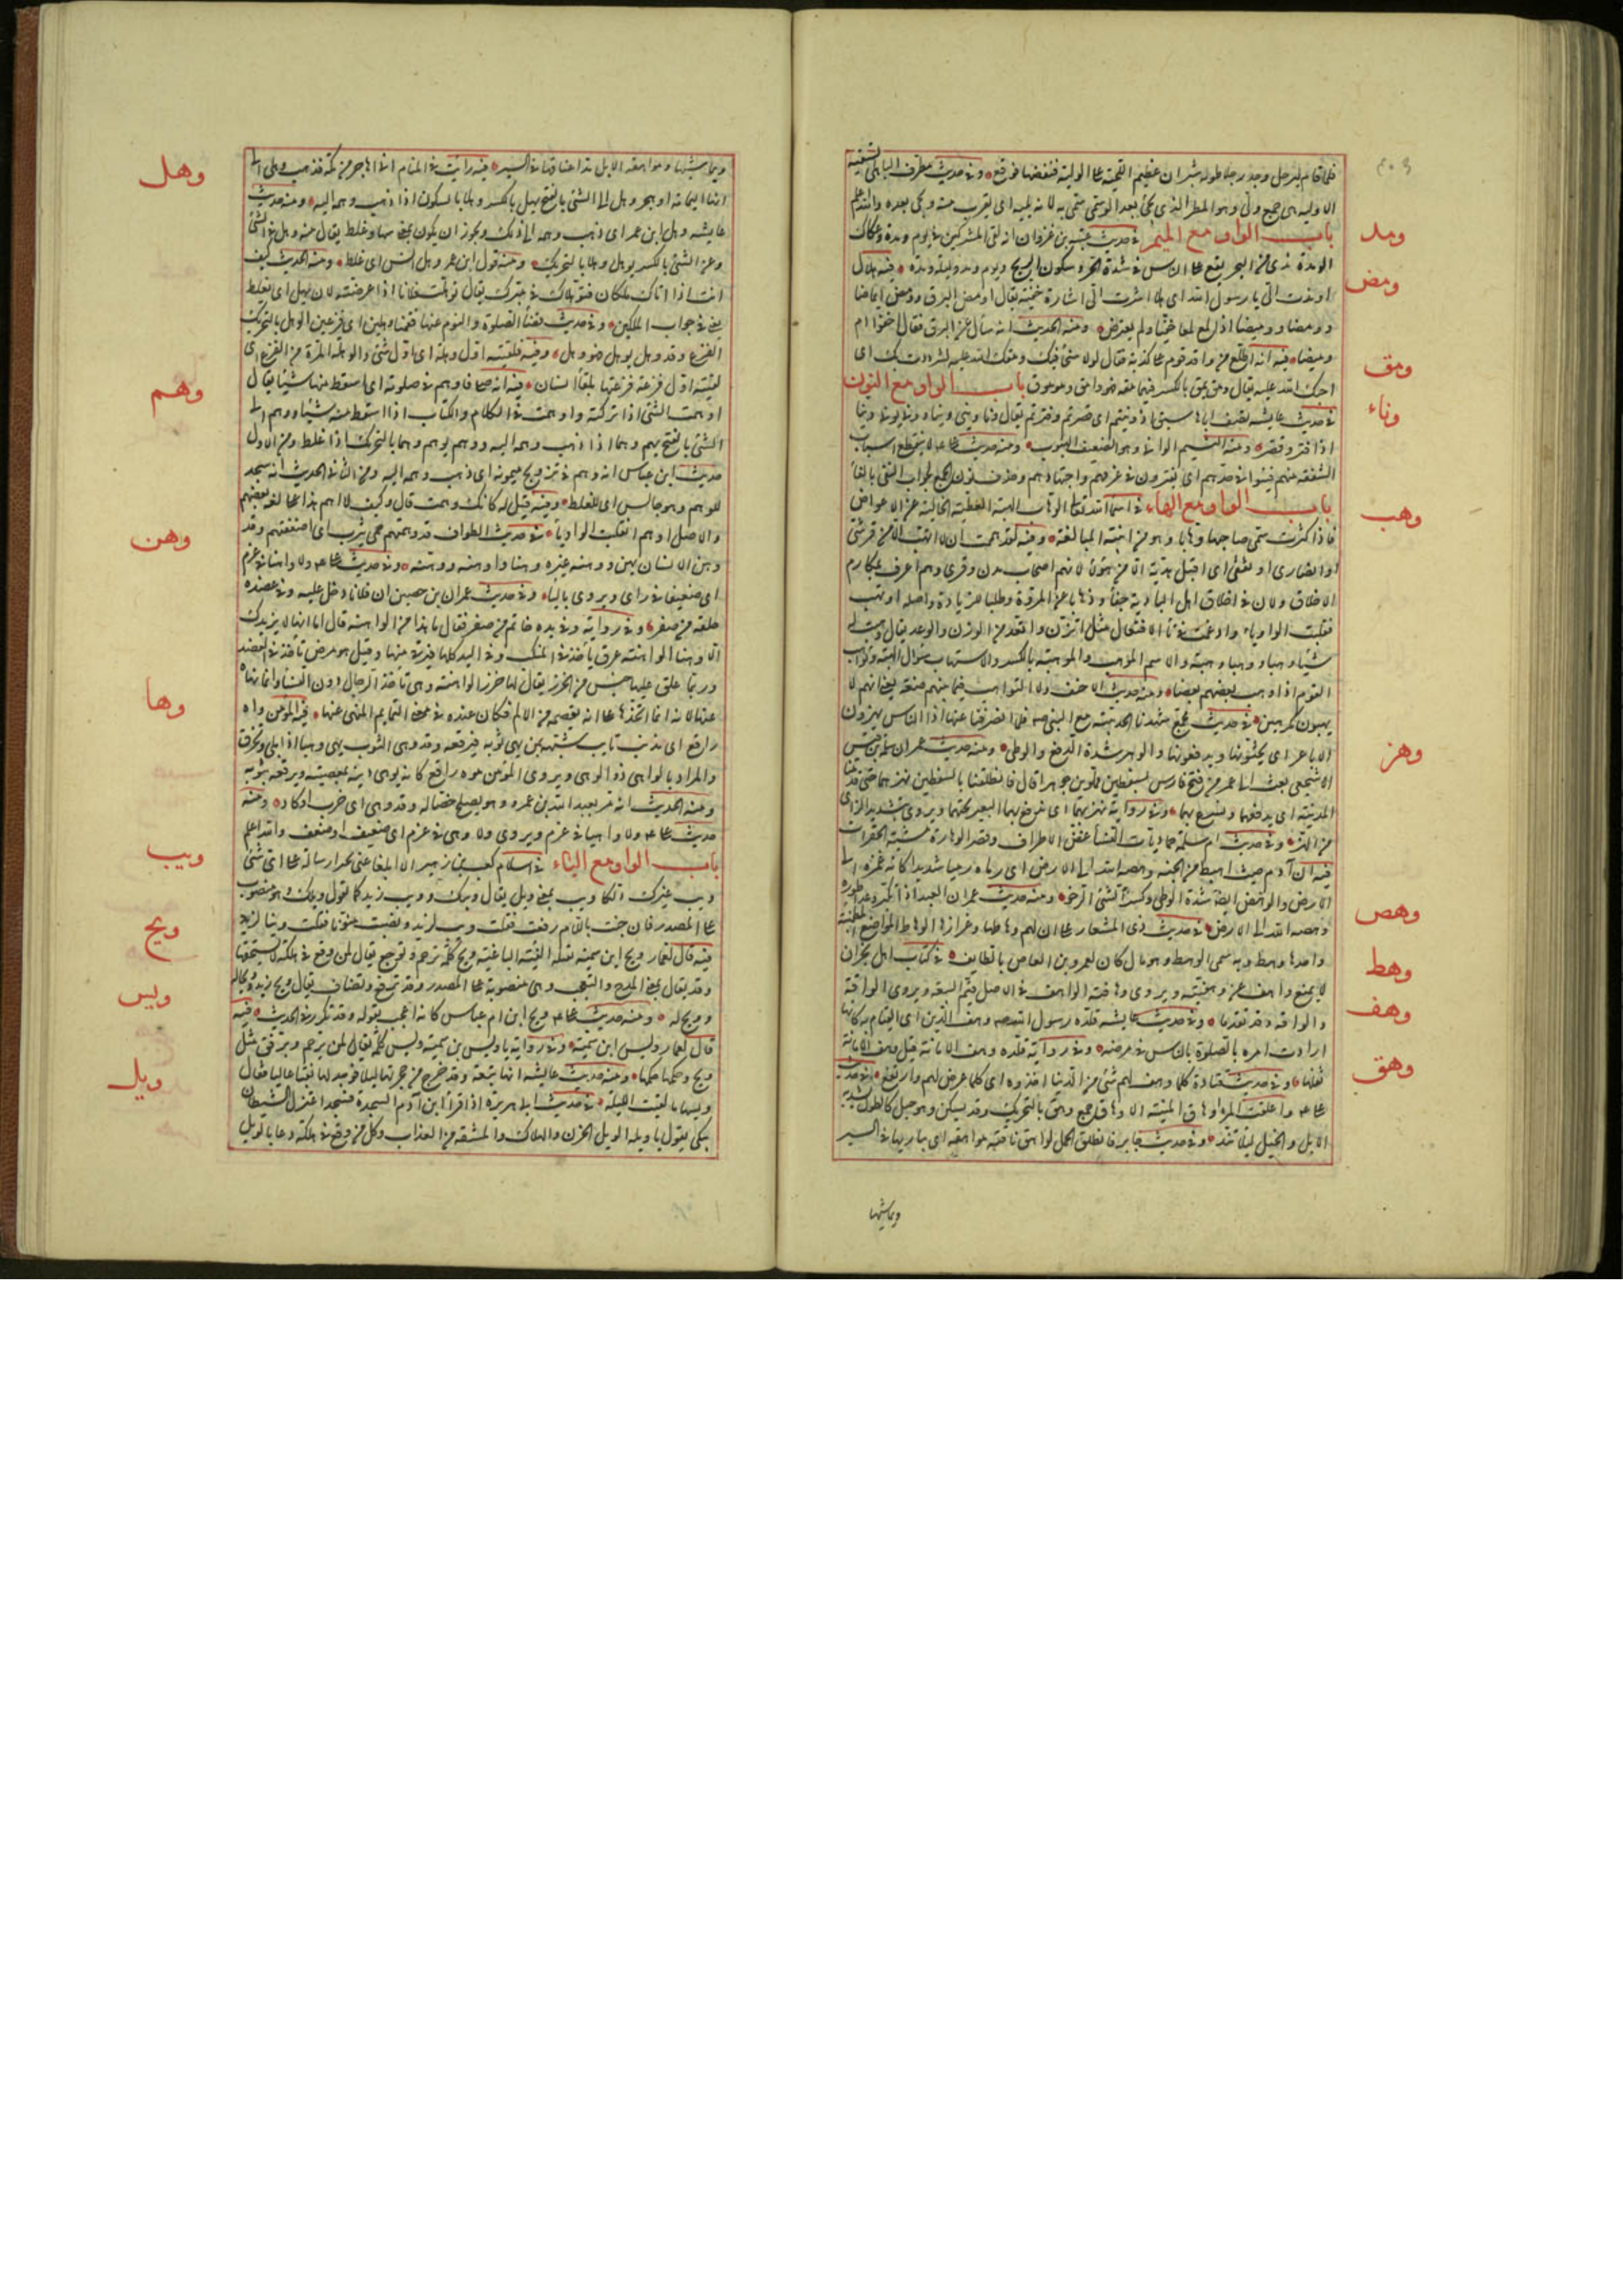 فلما قام ليرحل وجد رجلا طوله شبران عظيم اللحية على الولية فنفضها فوقع وفي حديث مطرف الباهلي تسقيه
الاوليه هى جمع ولى وهو المطر الذى يجئ بعد الوسمى سمى به لانه يليه اى يقرب منه ويجئ بعده والله اعلم
باب الواو مع الميم في حديث عتبة بن غزوان انه لقى المشركين في يوم ومدة وعكاك
الومدة ندى من البحر يقع على الناس في شدة الحر وسكون الريح ويوم ومد وليلة ومدة فيه هلا
اومضت الى يا رسول الله اى هلا اشرت الى اشارة خفية يقال اومض البرق وومض ايماضا
وومضا ووميضا اذا لمع لمعا خفيا ولم يعترض ومنه الحديث انه سأل عن البرق فقال اخفوا ام
وميضا فيه انه اطلع من وافد قوم على كذبة فقال لولا سخئ فيك ومقك الله عليه لشردت بك اى
احبك الله عليه يقال ومق يمق بالكسر فيهما مقة فهو وامق وموموق باب الواو مع النون
في حديث عايشة تصف اباها سبق اذ ونيتم اى قصرتم وفترتم يقال ونا ينى ونيا وونى يونى ونيا
اذا فتر وقصر ومنه النسيم الوانى وهو الضعيف الهبوب ومنه حديث على لا ينقطع اسباب
الشفقة منهم فينوا في جدهم اى يفترون في عزمهم واجتهادهم وحذف نون الجمع لجواب النفى بالفا
باب الواو مع الهاء في اسما الله تعالى الوهاب الهبة العطية الخالية عن الاعواض
فاذا كثرت سمى صاحبها وهابا وهو من ابنية المبالغة وفيه لقد هممت ان لا اتهب الا من قرشى
او انصارى او ثقفى اى اقبل هدية الا من هؤلا لانهم اصحاب مدن وقرى وهم اعرف بمكارم
الاخلاق ولان في اخلاق اهل البادية جفا وذهابا عن المروة وطلبا للزيادة واصله اوتهب
فقلبت الواو ياء وادغمت في تا الافتعال مثل اتزن واتعد من الوزن والوعد يقال وهبت له
شيا وهبا ووهبا وهبة والاسم الموهب والموهبة بالكسر والاستيهاب سؤال الهبة وتواهب
القوم اذا وهب بعضهم بعضا ومنه حديث الاحنف ولا التواهب فيما بينهم ضعة يعنى انهم لا
يهبون مكرهين في حديث مجمع شهدنا الحديبية مع النبى صه فلما انصرفنا عنها اذا الناس يهزون
الاباعر اى يحثونها ويدفعونها والوهز شدة الدفع والوطى ومنه حديث عمر ان سلمة بن قيس
الاشجعى بعث الى عمر من فتح فارس بسفطين مملوين جوهرا قال فانطلقنا بالسفطين نهزهما حتى قدمنا
المدينة اى يدفعهما ونسرع بهما وفي رواية نهز بهما اى ندفع بهما البعير تحتهما ويروى بتشديد الزاى
من الهز وفي حديث ام سلمة حماديات النسا غض الاطراف وقصر الوهازة مشية الخفرات
فيه ان آدم حيث اهبط من الجنة وهصه الله الى الارض اى رماه رميا شديدا كانه غمزه الى
الارض والوهص ايضا شدة الوطى وكسر الشئ الرخو ومنه حديث عمر ان العبد اذا تكبر وعدا طوره
وهصه الله الى الارض في حديث ذى المشعار على ان لهم وهاطها وعزازها الوهاط المواضع المطمئنة
واحدها وهط وبه سمى الوهط وهو مال كان لعمرو بن العاص بالطايف في كتاب اهل نجران
لا يمنع واهف عن وهفيته ويروى وهافته الواهف في الاصل قيم البيعة ويروى الوافه
والواقه وقد تقدما وفي حديث عايشة قلده رسول الله صه وهف الدين اى القيام به كانها
ارادت امره بالصلوة بالناس في مرضه وفي رواية قلده وهف الامانة قيل وهف الامانة
ثقلها وفي حديث قتادة كلما وهف لهم شئ من الدنيا اخذوه اى كلما عرض لهم وارتفع في حديث
على واعلقت المرء اوهاق المنية الاوهاق جمع وهق بالتحريك وقد يسكن وهو حبل كالطول تشد به
الابل والخيل ليلا تند وفي حديث جابر فانطلق الجمل يواهق ناقته مواهقة اى يباريها في السير
ويماشيها
ومد
ومض
ومق
وناء
وهب
وهز
وهص
وهط
وهف
وهق
ويماشيها ومواهقة الابل مد اعناقها في السير فيه رايت في المنام انى اهاجر من مكة فذهب وهلى الى
انها اليمامة او هجر وهل الى الشئ بالفتح يهل بالكسر وهلا بالسكون اذا ذهب وهمه اليه ومنه حديث
عايشه وهل ابن عمر اى ذهب وهمه الى ذلك ويجوز ان يكون بمعنى سها وغلط يقال منه وهل في الشئ
وعن الشئ بالكسر يوهل وهلا بالتحريك ومنه قول ابن عمر وهل انس اى غلط ومنه الحديث كيف
انت اذا اتاك ملكان فتوهلاك في قبرك يقال توهلت فلانا اذا عرضته لان يهل اى يغلط
يعنى في جواب الملكين وفي حديث قضا الصلوة والنوم عنها فقمنا وهلين اى فزعين الوهل بالتحريك
الفزع وقد وهل يوهل فهو وهل وفيه فلقيته اول وهلة اى اول شئ والوهلة المرة من الفزع اى
لقيته اول فزعة فزعتها بلقا انسان فيه انه صلى فاوهم في صلوته اى اسقط منها شيئا يقال
اوهمت الشئ اذا تركته واوهمت في الكلام والكتاب اذا اسقطت منه شيئا ووهم الى
الشئ بالفتح يهم وهما اذا ذهب وهمه اليه ووهم يوهم وهما بالتحريك اذا غلط ومن الاول
حديث ابن عباس انه وهم في تزويج ميمونة اى ذهب وهمه اليه ومن الثانى الحديث انه سجد
للوهم وهو جالس اى للغلط وفيه قيل له كانك وهمت قال وكيف لا اهم هذا على لغة بعضهم
والاصل اوهم انقلبت الواو يا في حديث الطواف قد وهنتهم حمى يثرب اى اضعفتهم وقد
وهن الانسان يهن ووهنه غيره وهنا واوهنه ووهنه وفي حديث على ولا واهنا في عزم
اى ضعيفا في راى ويروى باليا وفي حديث عمران بن حصين ان فلانا دخل عليه وفي عضده
حلقة من صفر وفي رواية وفي يده خاتم من صفر فقال ما هذا من الواهنة قال اما انها لا يزيدك
الا وهنا الواهنة عرق ياخذ في المنكب وفي اليد كلها فيرقى منها وقيل هو مرض ياخذ في العضد
وربما علق عليها جنس من الخرز يقال لها خرز الواهنة وهى تاخذ الرجال دون النسا وانما نهاه
عنها لانه انما اتخذها على انه تعصمه من الالم فكان عنده في معنى التمايم المنهى عنها فيه المؤمن واه
راقع اى مذنب تايب شبهه بمن يهى ثوبه فيرقعه وقد وهى الثوب يهى وهيا اذا بلى وتخرق
والمراد بالواهى ذو الوهى ويروى المؤمن موه راقع كانه يوهى دينه بمعصيته ويرقعه بتوبته
ومنه الحديث انه مر بعبد الله بن عمرو وهو يصلح خصا له وقد وهى اى خرب او كاد ومنه
حديث على ولا واهيا في عزم ويروى ولا وهى في عزم اى ضعيف او ضعف والله اعلم
باب الواو مع الياء في اسلام كعب بن زهير الا ابلغا عنى بجيرا رسالة على اى شئ
ويب غيرك دلكا ويب بمعنى ويل يقال ويبك وويب زيد كما تقول ويلك وهو منصوب
على المصدر فان جئت باللام رفعت فقلت ويب لزيد ونصبت منونا فقلت ويبا لزيد
فيه قال لعمار ويح ابن سمية تقتله الفئة الباغية ويح كلمة ترحم وتوجع يقال لمن وقع في هلكة لا يستحقها
وقد يقال بمعنى المدح والتعجب وهى منصوبة على المصدر وقد ترفع وتضاف يقال ويح زيد وويحا له
وويح له ومنه حديث على ويح ابن ام عباس كانه اعجب بقوله وقد تكرر في الحديث فيه
قال لعمار ويس ابن سمية وفي رواية يا ويس بن سمية ويس كلمة يقال لمن يرحم ويرفق مثل
ويح وحكمها حكمها ومنه حديث عايشة انها تبعته وقد خرج من حجرتها ليلا فوجد لها نفسا عاليا فقال
ويسها ما لقيت الليلة في حديث ابى هريرة اذا قرا ابن آدم السجدة فسجد اعتزل الشيطان
يبكى يقول يا ويله الويل الحزن والهلاك والمشقة من العذاب وكل من وقع في هلكة دعا بالويل
وهل
وهم
وهن
وها
ويب
ويح
ويس
ويل